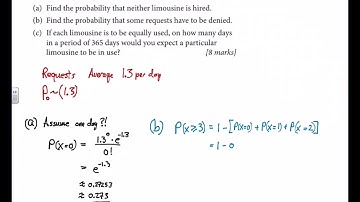 (a) Find the probability that neither limousine is hired.
(b) Find the probability that some requests have to be denied.
(c) If each limousine is to be equally used, on how many days
in a period of 365 days would you expect a particular
limousine to be in use? [8 marks]
Requests Average 1.3 per day
Po~(1.3)
(a) Assume one day?!
P(X=0) = 1.3⁰ · e^-1.3
0!
= e^-1.3
≈ 0.27253
≈ 0.273
(b) P(X≥3) = 1 - [P(X=0) + P(X=1) + P(X=2)]
= 1 - 0